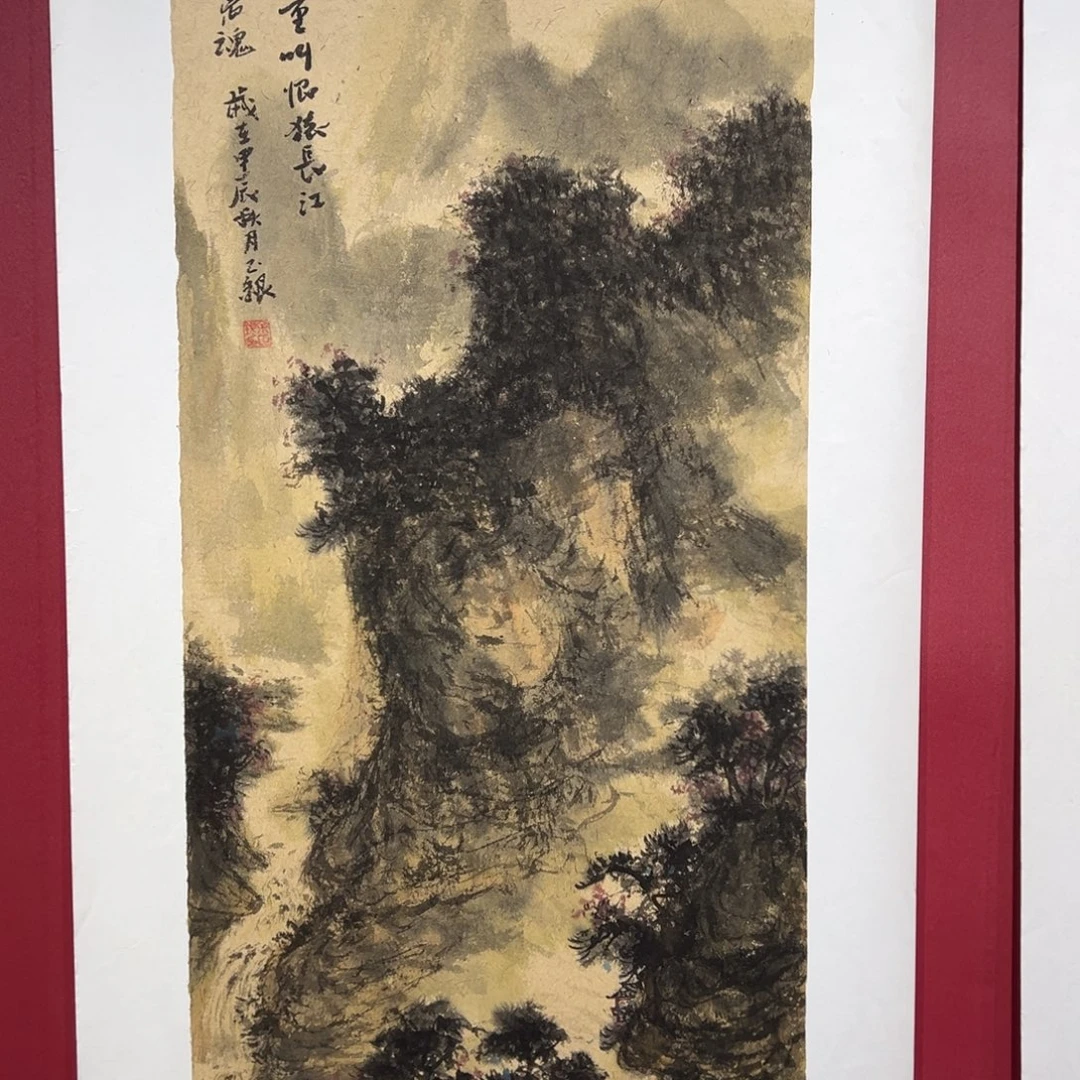 重叫恨猿長江
魂 歲在甲辰秋月乙銀